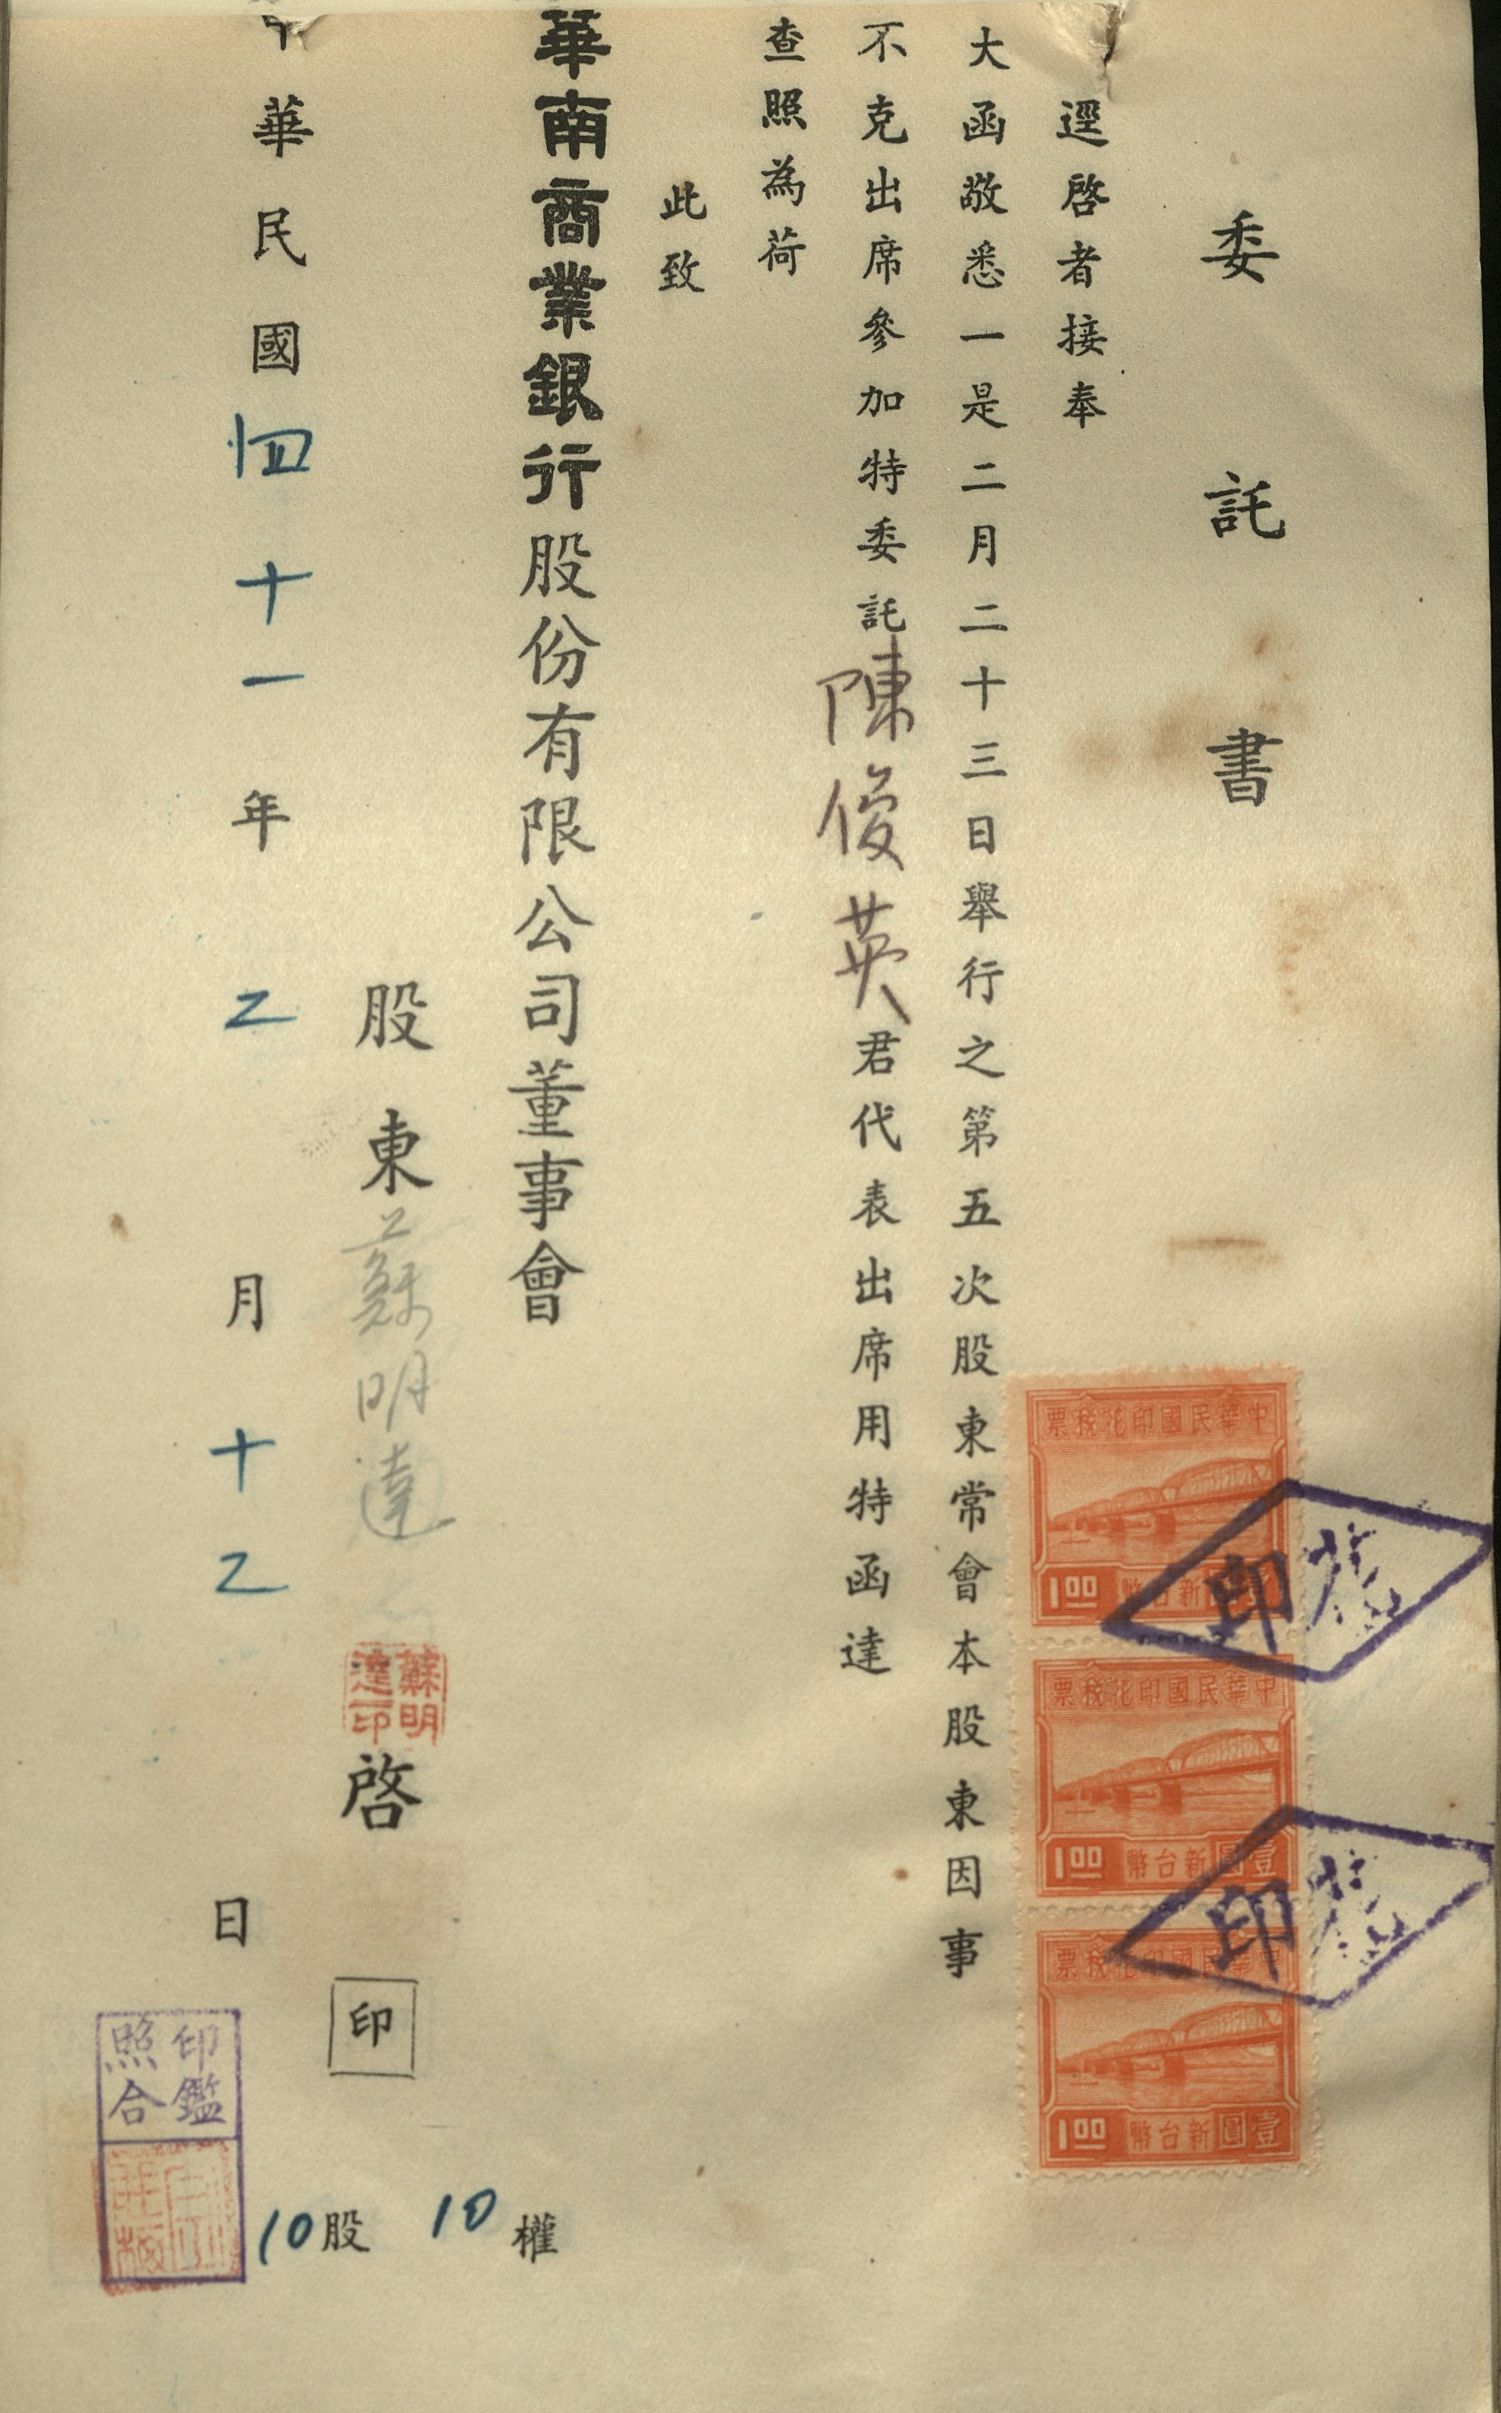 委託書
逕啓者接奉
大函敬悉一是二月二十三日舉行之第五次股東常會本股東因事
不克出席參加特委託陳俊英君代表出席用特函達
查照為荷
此致
華南商業銀行股份有限公司董事會
股東蘇明達啓
蘇明達印
印
中華民國四十一年乙月十乙日
10股 10權
印鑑
照合
中華民國印花稅票
1.00 新台幣壹圓
中華民國印花稅票
1.00 新台幣壹圓
中華民國印花稅票
1.00 新台幣壹圓
花印
花印